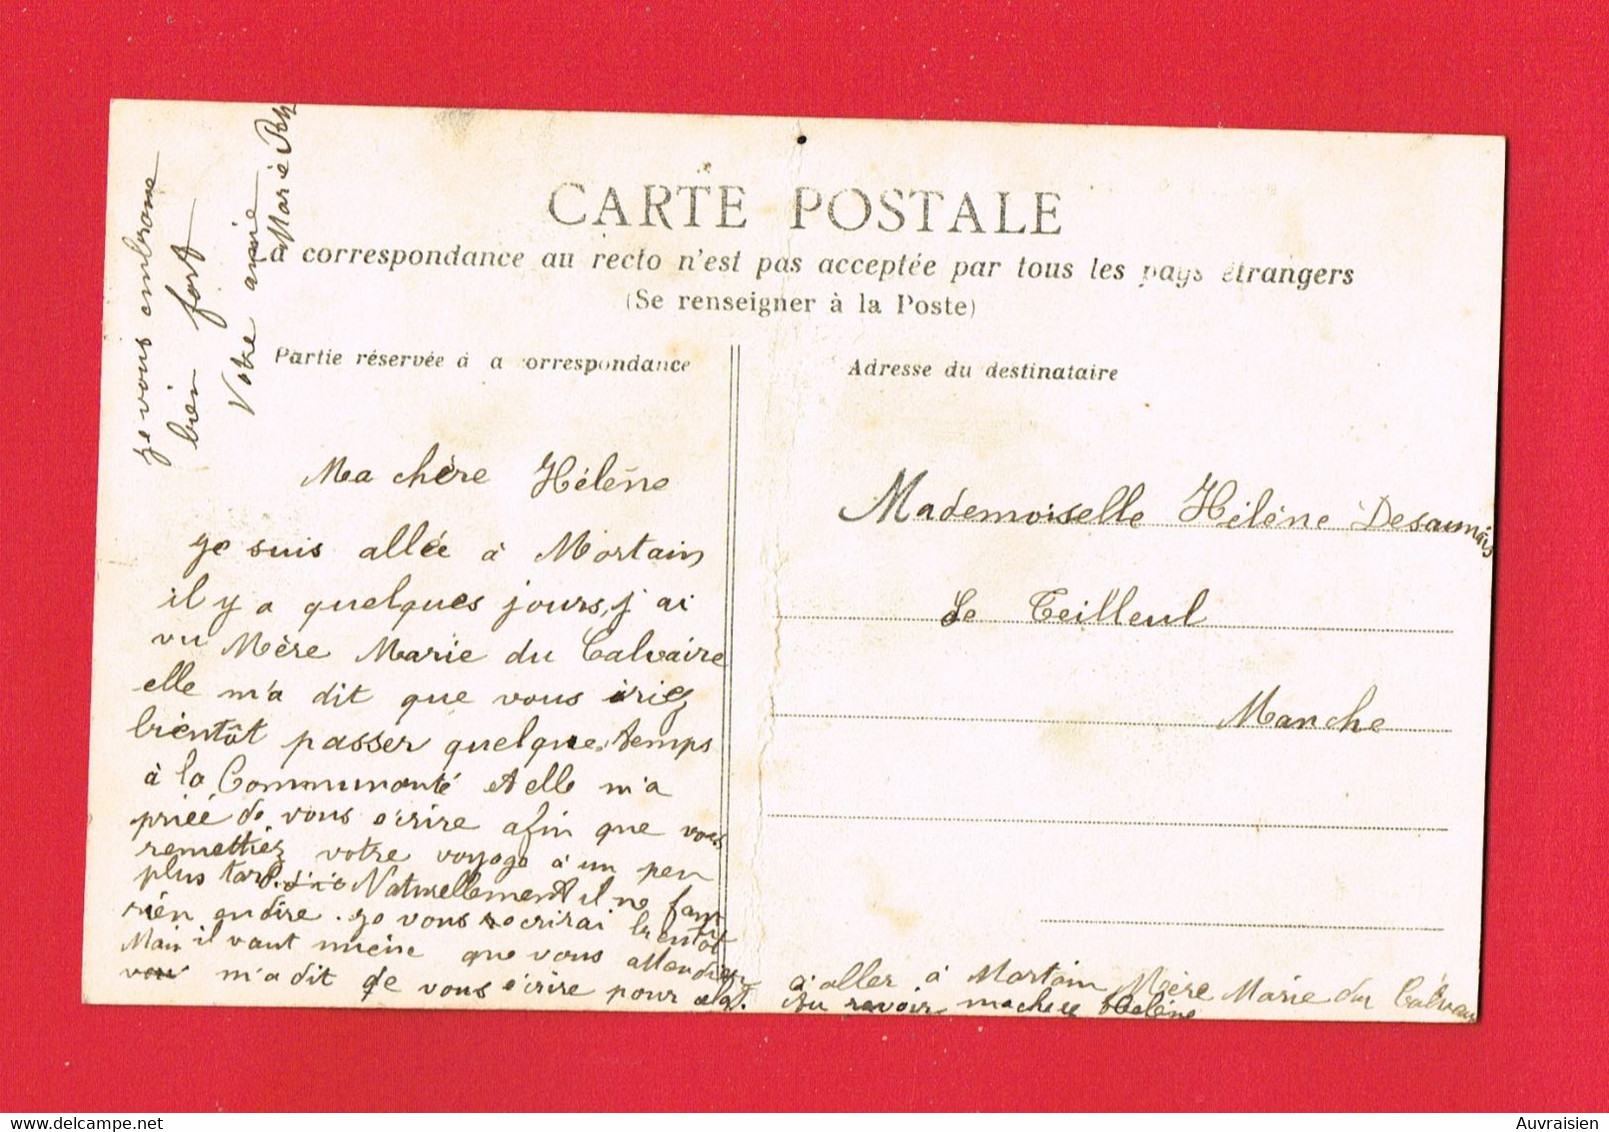 CARTE POSTALE
La correspondance au recto n'est pas acceptée par tous les pays étrangers
(Se renseigner à la Poste)
Partie réservée à a correspondance
Adresse du destinataire
Ma chère Hélène
Je suis allée à Mortain
il y a quelques jours, j'ai
vu Mère Marie du Calvaire
elle m'a dit que vous iriez
bientôt passer quelque temps
à la Communauté et elle m'a
priée de vous écrire afin que vous
remettiez votre voyage à un peu
plus tard. Naturellement il ne faut
rien en dire. Je vous écrirai bientôt
Mais il vaut mieux que vous attendiez
à aller à Mortain Mère Marie du Calvaire
m'a dit de vous écrire pour cela. Au revoir ma chère Hélène
Je vous embrasse
bien fort
Votre amie
Marie
Mademoiselle Hélène Desaunais
Le Teilleul
Manche
delcampe.net
Auvraisien